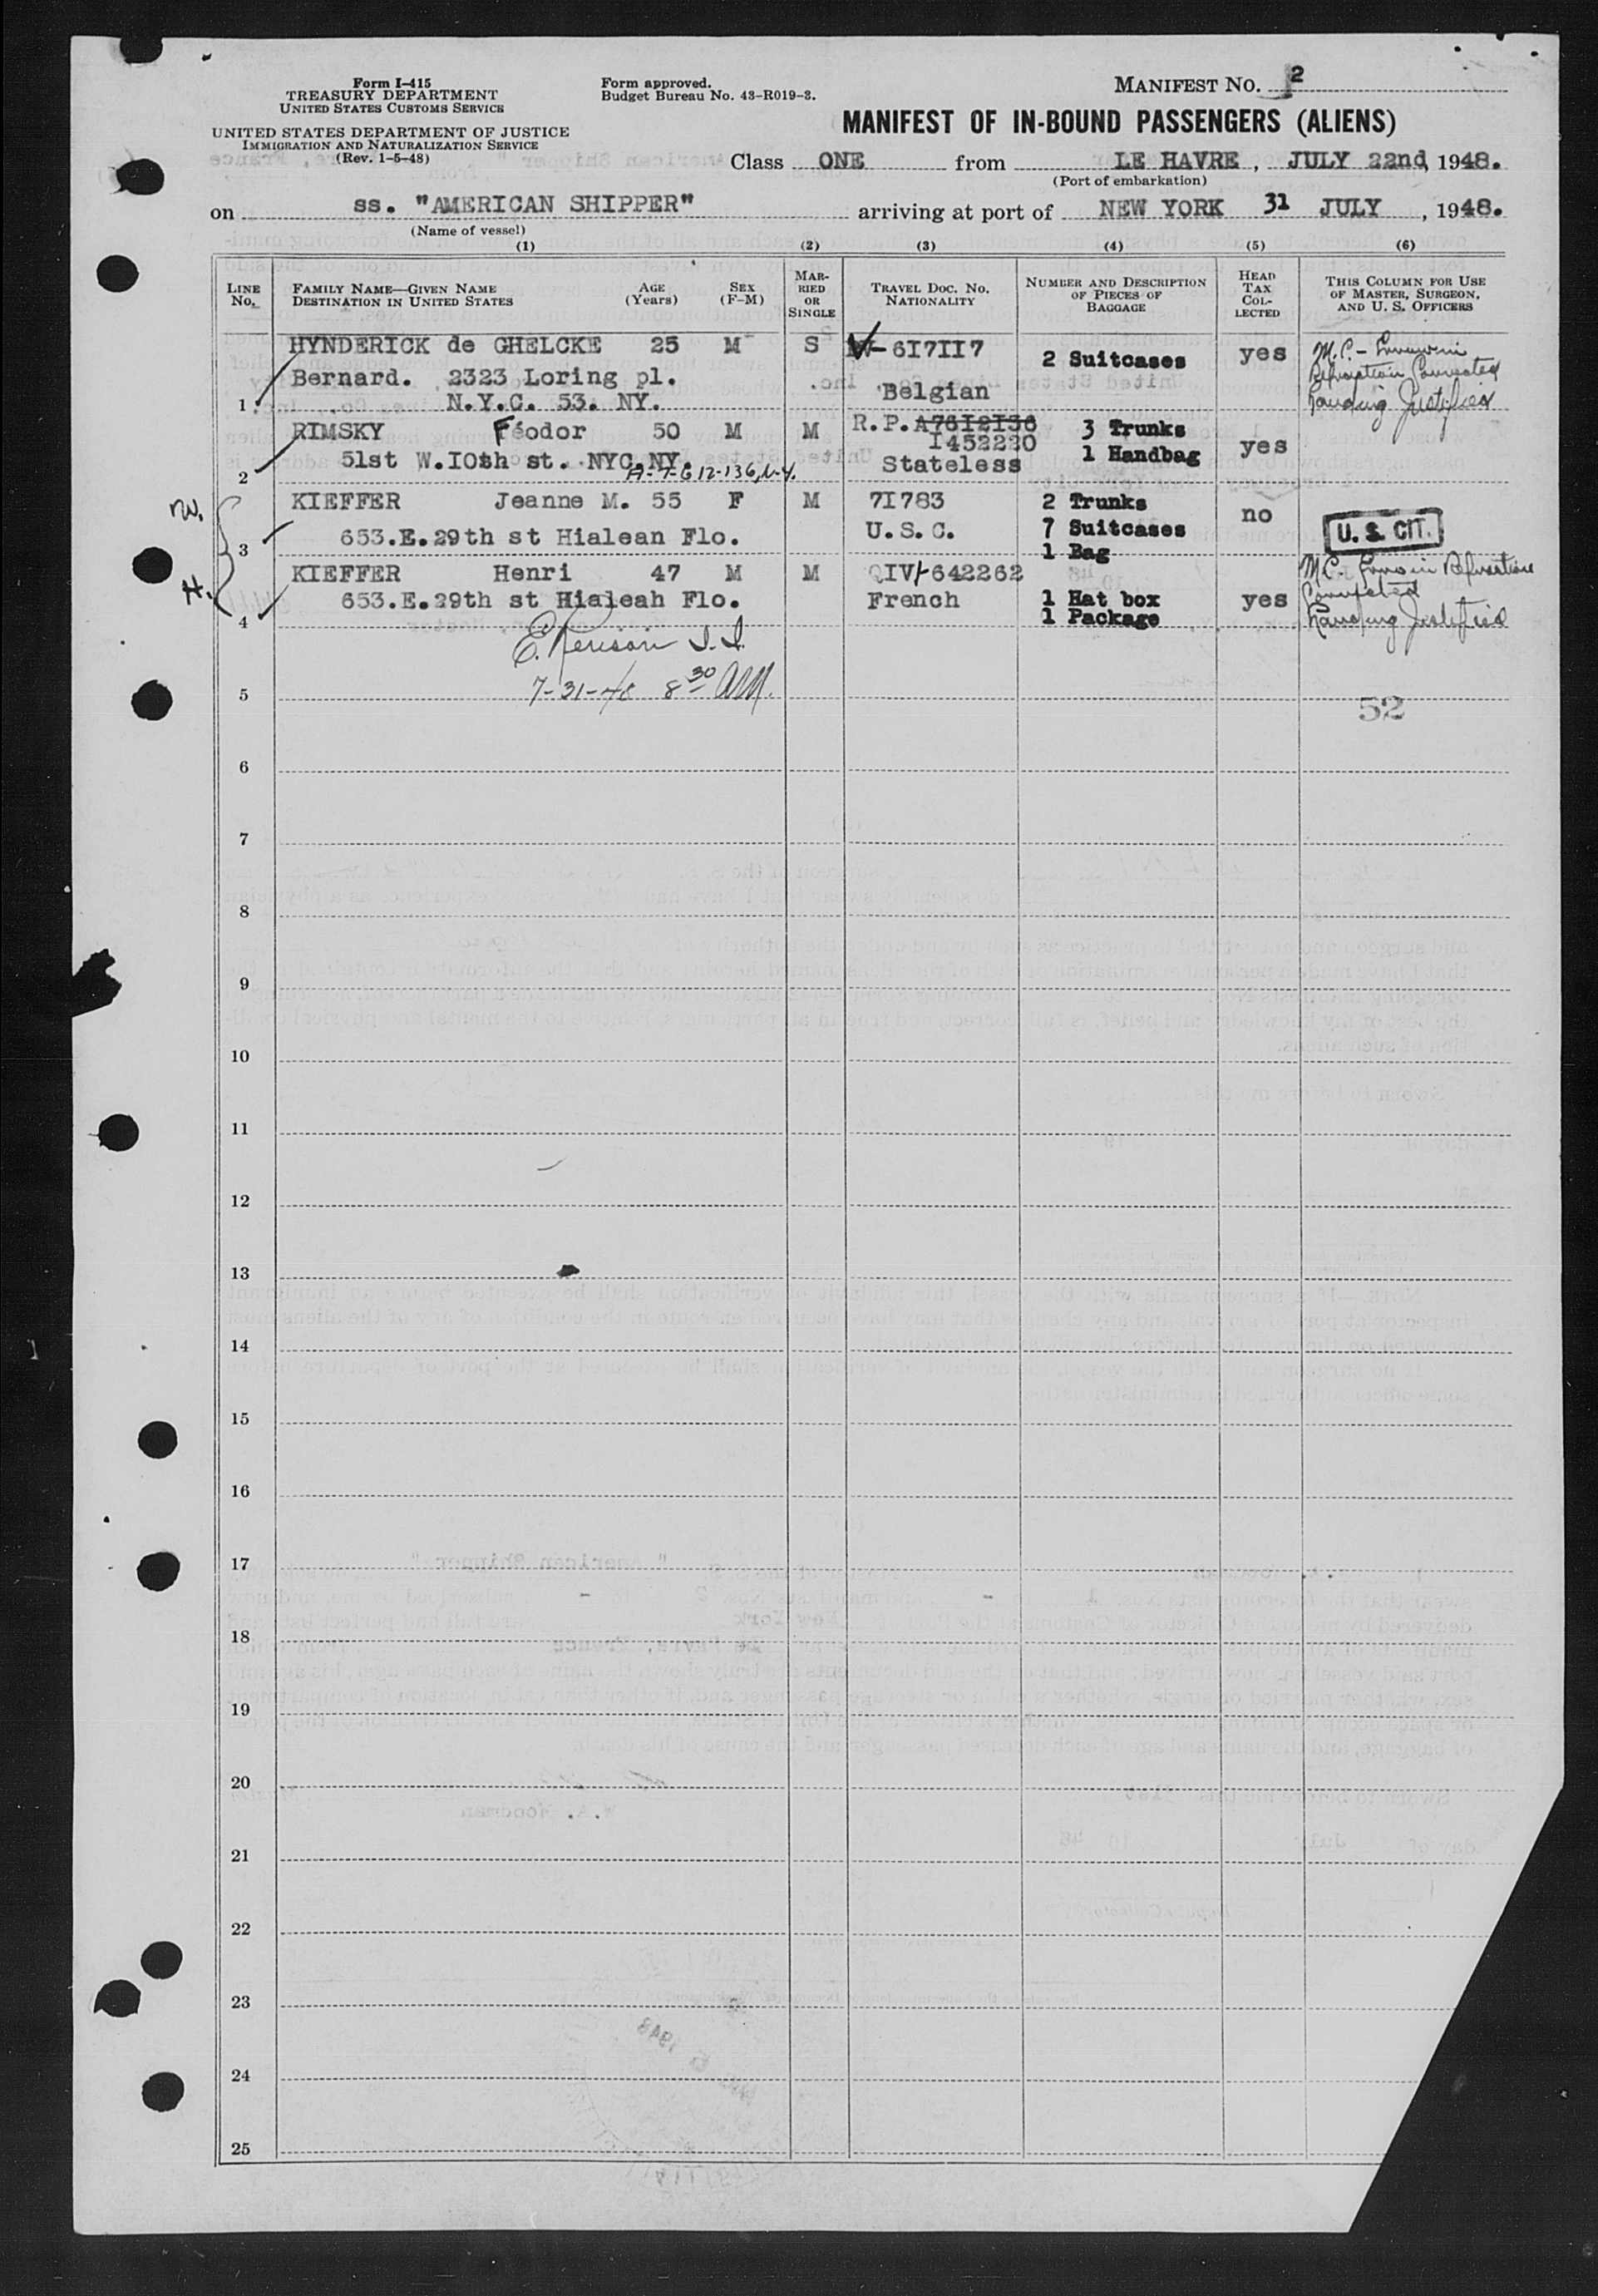 Form I-415
TREASURY DEPARTMENT
UNITED STATES CUSTOMS SERVICE
UNITED STATES DEPARTMENT OF JUSTICE
IMMIGRATION AND NATURALIZATION SERVICE
(Rev. 1-5-48)
Form approved.
Budget Bureau No. 43-R019-3.
MANIFEST NO. 2
MANIFEST OF IN-BOUND PASSENGERS (ALIENS)
Class ONE from LE HAVRE, JULY 22nd, 1948.
(Port of embarkation)
on ss. "AMERICAN SHIPPER" arriving at port of NEW YORK 31 JULY, 1948.
(Name of vessel)
(1) (2) (3) (4) (5) (6)
LINE No. FAMILY NAME—GIVEN NAME DESTINATION IN UNITED STATES AGE (Years) SEX (F-M) MARRIED OR SINGLE TRAVEL DOC. NO. NATIONALITY NUMBER AND DESCRIPTION OF PIECES OF BAGGAGE HEAD TAX COLLECTED THIS COLUMN FOR USE OF MASTER, SURGEON, AND U. S. OFFICERS
HYNDERICK de GHELCKE 25 M S 6I7II7 2 Suitcases yes M.C.-
Bernard. 2323 Loring pl. Belgian
1 N.Y.C. 53. NY. Landing Justified
RIMSKY Féodor 50 M M R.P. A76I2I36 3 Trunks yes
I452220 1 Handbag
51st W.IOth st. NYC.NY. Stateless
2 A-7-612-136, N.Y.
W. KIEFFER Jeanne M. 55 F M 7I783 2 Trunks no
3 653.E.29th st Hialean Flo. U.S.C. 7 Suitcases U.S. CIT.
1 Bag
H. KIEFFER Henri 47 M M QIV-642262 M.C.
4 653.E.29th st Hialeah Flo. French 1 Hat box yes
1 Package Landing Justified
E. Kenison I.I.
5 7-31-48 8 30 AM. 52
6
7
8
9
10
11
12
13
14
15
16
17
18
19
20
21
22
23
24
25